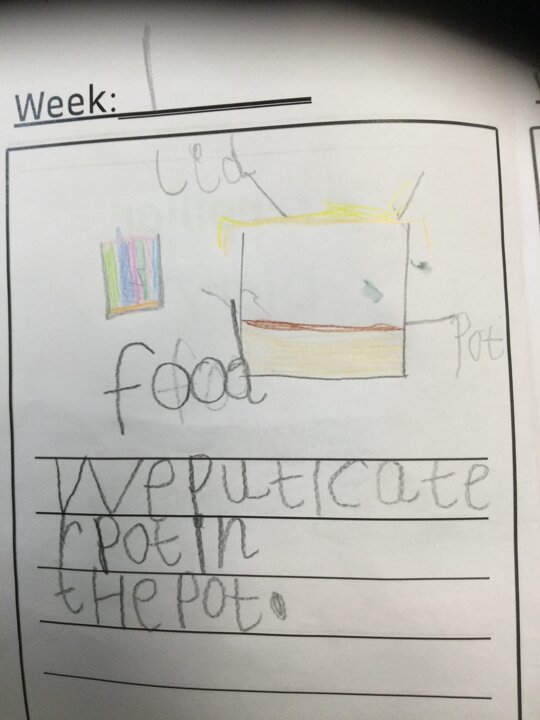 Week: 1
lid
Pot
food
We put 1 cate
rpot in
tHe pot.